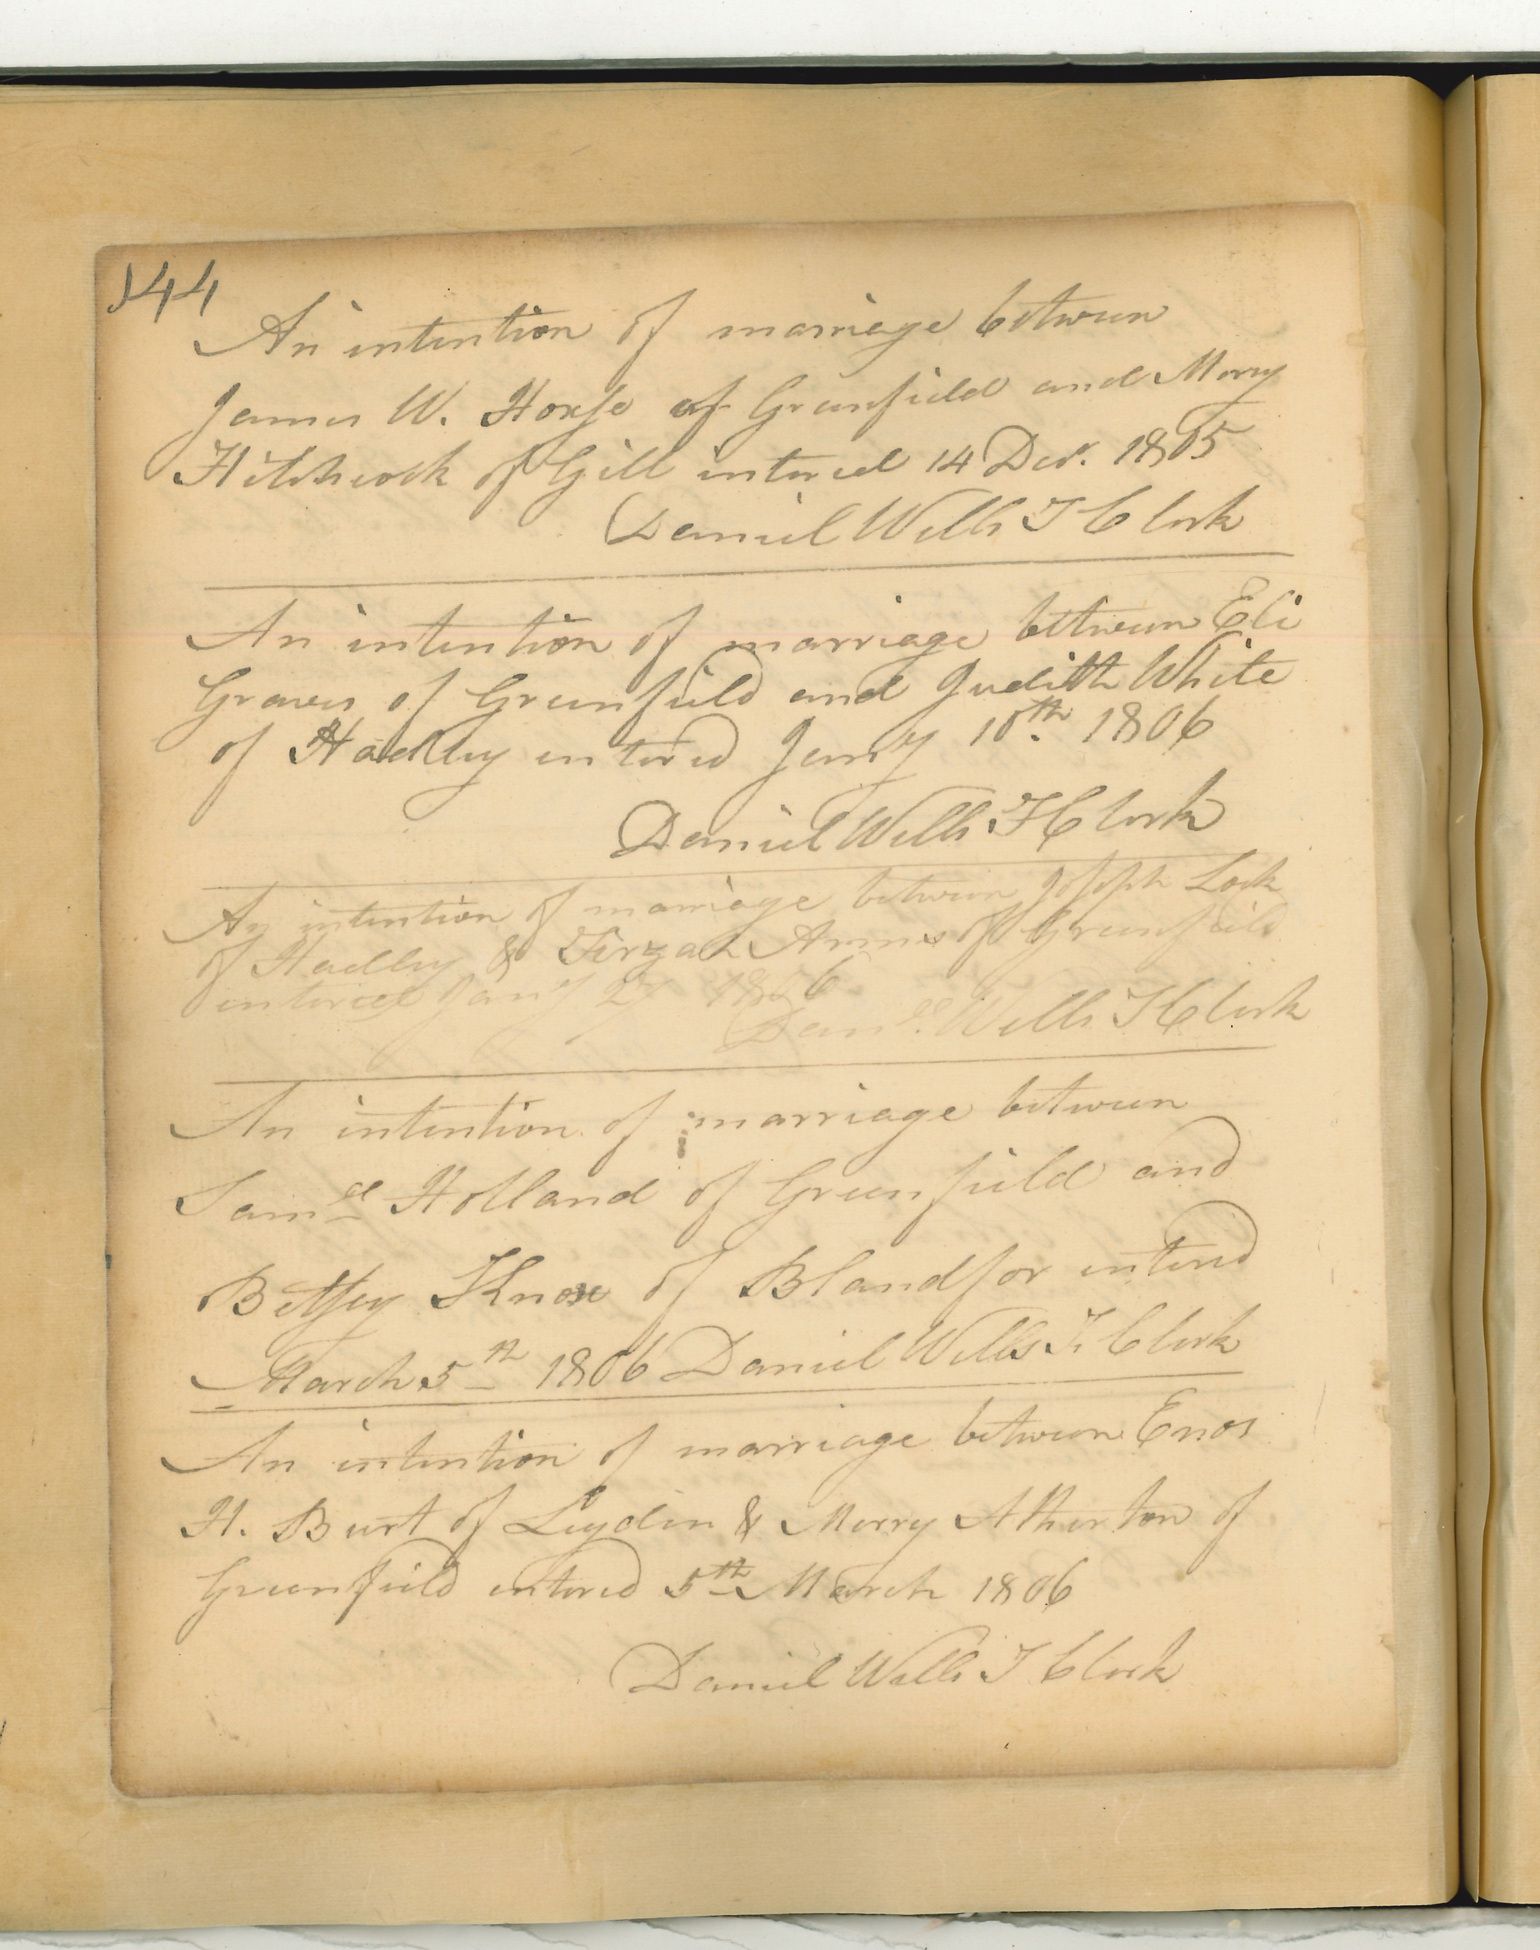 144
An intention of marriage between
James W. Horse of Greenfield and Mercy
Hitchcock of Gill entered 14 Decr. 1805
Daniel Wells T Clerk
An intention of marriage between Eli
Graves of Greenfield and Judith White
of Hadley entered Jany 10th. 1806
Daniel Wells T Clerk
An intention of marriage between Joseph Lock
of Hadley & Tirzah Arms of Greenfield
entered Jany 27 1806
Danl. Wells T Clerk
An intention of marriage between
Saml Holland of Greenfield and
Betsey Knox of Blandfor entered
March 5th 1806 Daniel Wells T. Clerk
An intention of marriage between Enos
H. Burt of Leyden & Mercy Atherton of
Greenfield entered 5th March 1806
Daniel Wells T Clerk